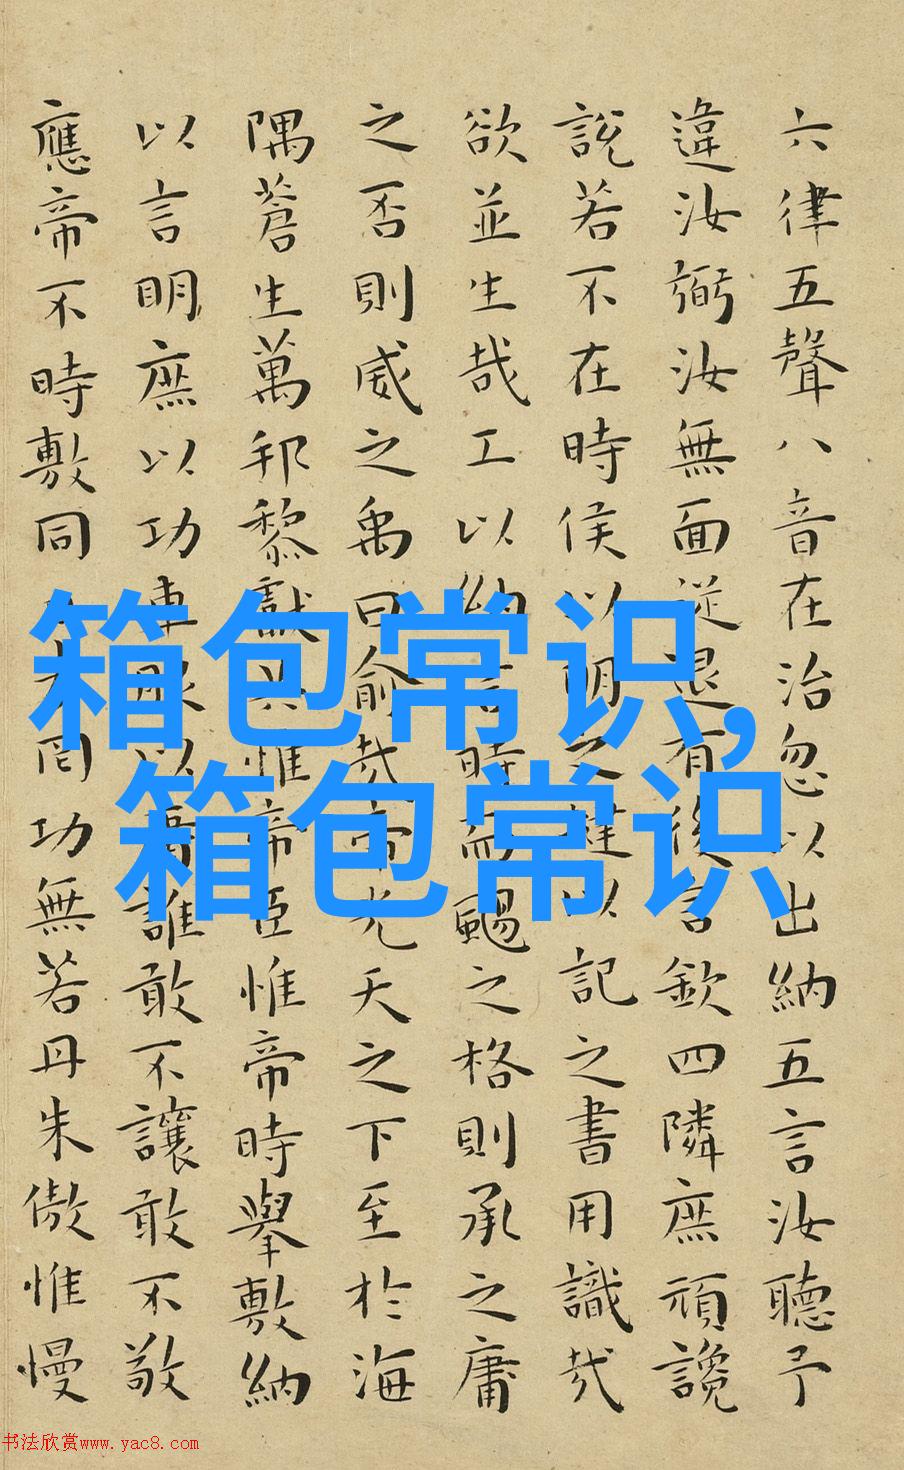 六律五聲八音在治忽以出納五言汝聽予
違汝弼汝無面從退有後言欽四隣庶頑讒
說若不在時侯以明之撻以記之書用識哉
欲並生哉工以納言時而颺之格則承之庸
之否則威之禹曰俞哉帝光天之下至於海
隅蒼生萬邦黎獻共惟帝臣惟帝時舉敷納
以言明庶以功車服以庸誰敢不讓敢不敬
應帝不時敷同日奏罔功無若丹朱傲惟慢
箱包常识,
箱包常识
书法欣赏www.yac8.com